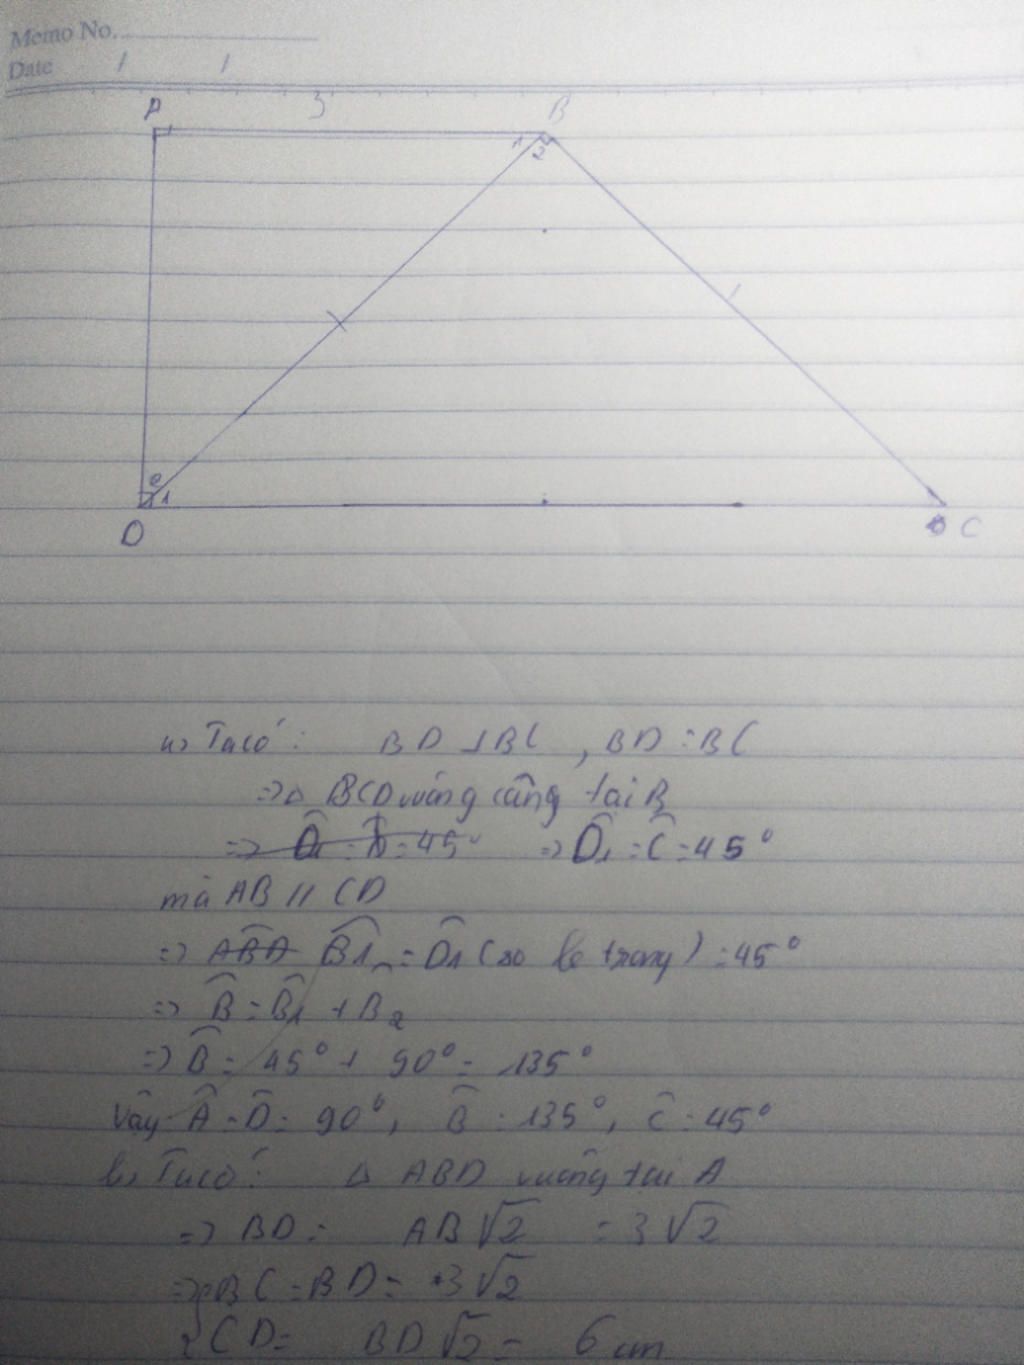 Memo No.
Date / /
A 3 B
1 2
2 1
D C
a) Ta có: BD ⊥ BC, BD = BC
=> Δ BCD vuông cân tại B
=> D̂₁ = D̂ = 45° => D̂₁ = Ĉ = 45°
mà AB // CD
=> ABD B̂₁ = D̂₁ (so le trong) = 45°
=> B̂ = B̂₁ + B̂₂
=> B̂ = 45° + 90° = 135°
Vậy Â = D̂ = 90°, B̂ = 135°, Ĉ = 45°
b) Ta có: Δ ABD vuông tại A
=> BD = AB√2 = 3√2
=> BC = BD = 3√2
CD = BD√2 = 6 cm